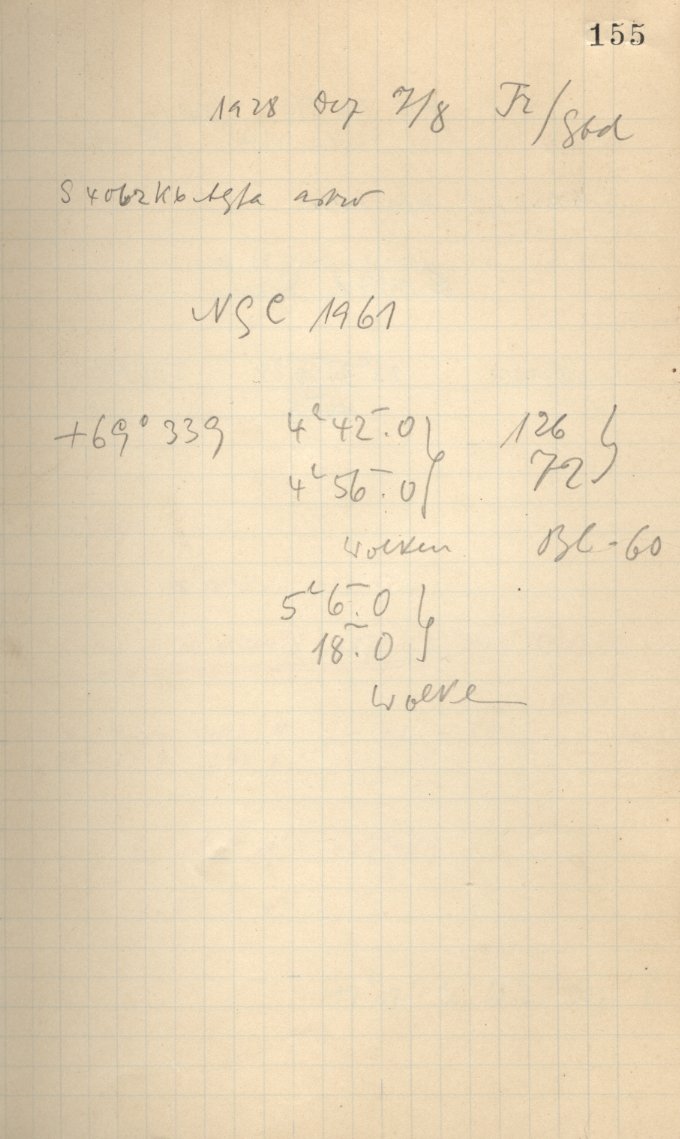 155
1928 Dez 7/8 Fr/Sbd
S 4062 Kb Agfa astro
NGC 1961
+69° 339 4h 42m.0 } 126 }
4h 56m.0 72
Wolken Bl - 60
5h 6m.0 }
18m.0
Wolken